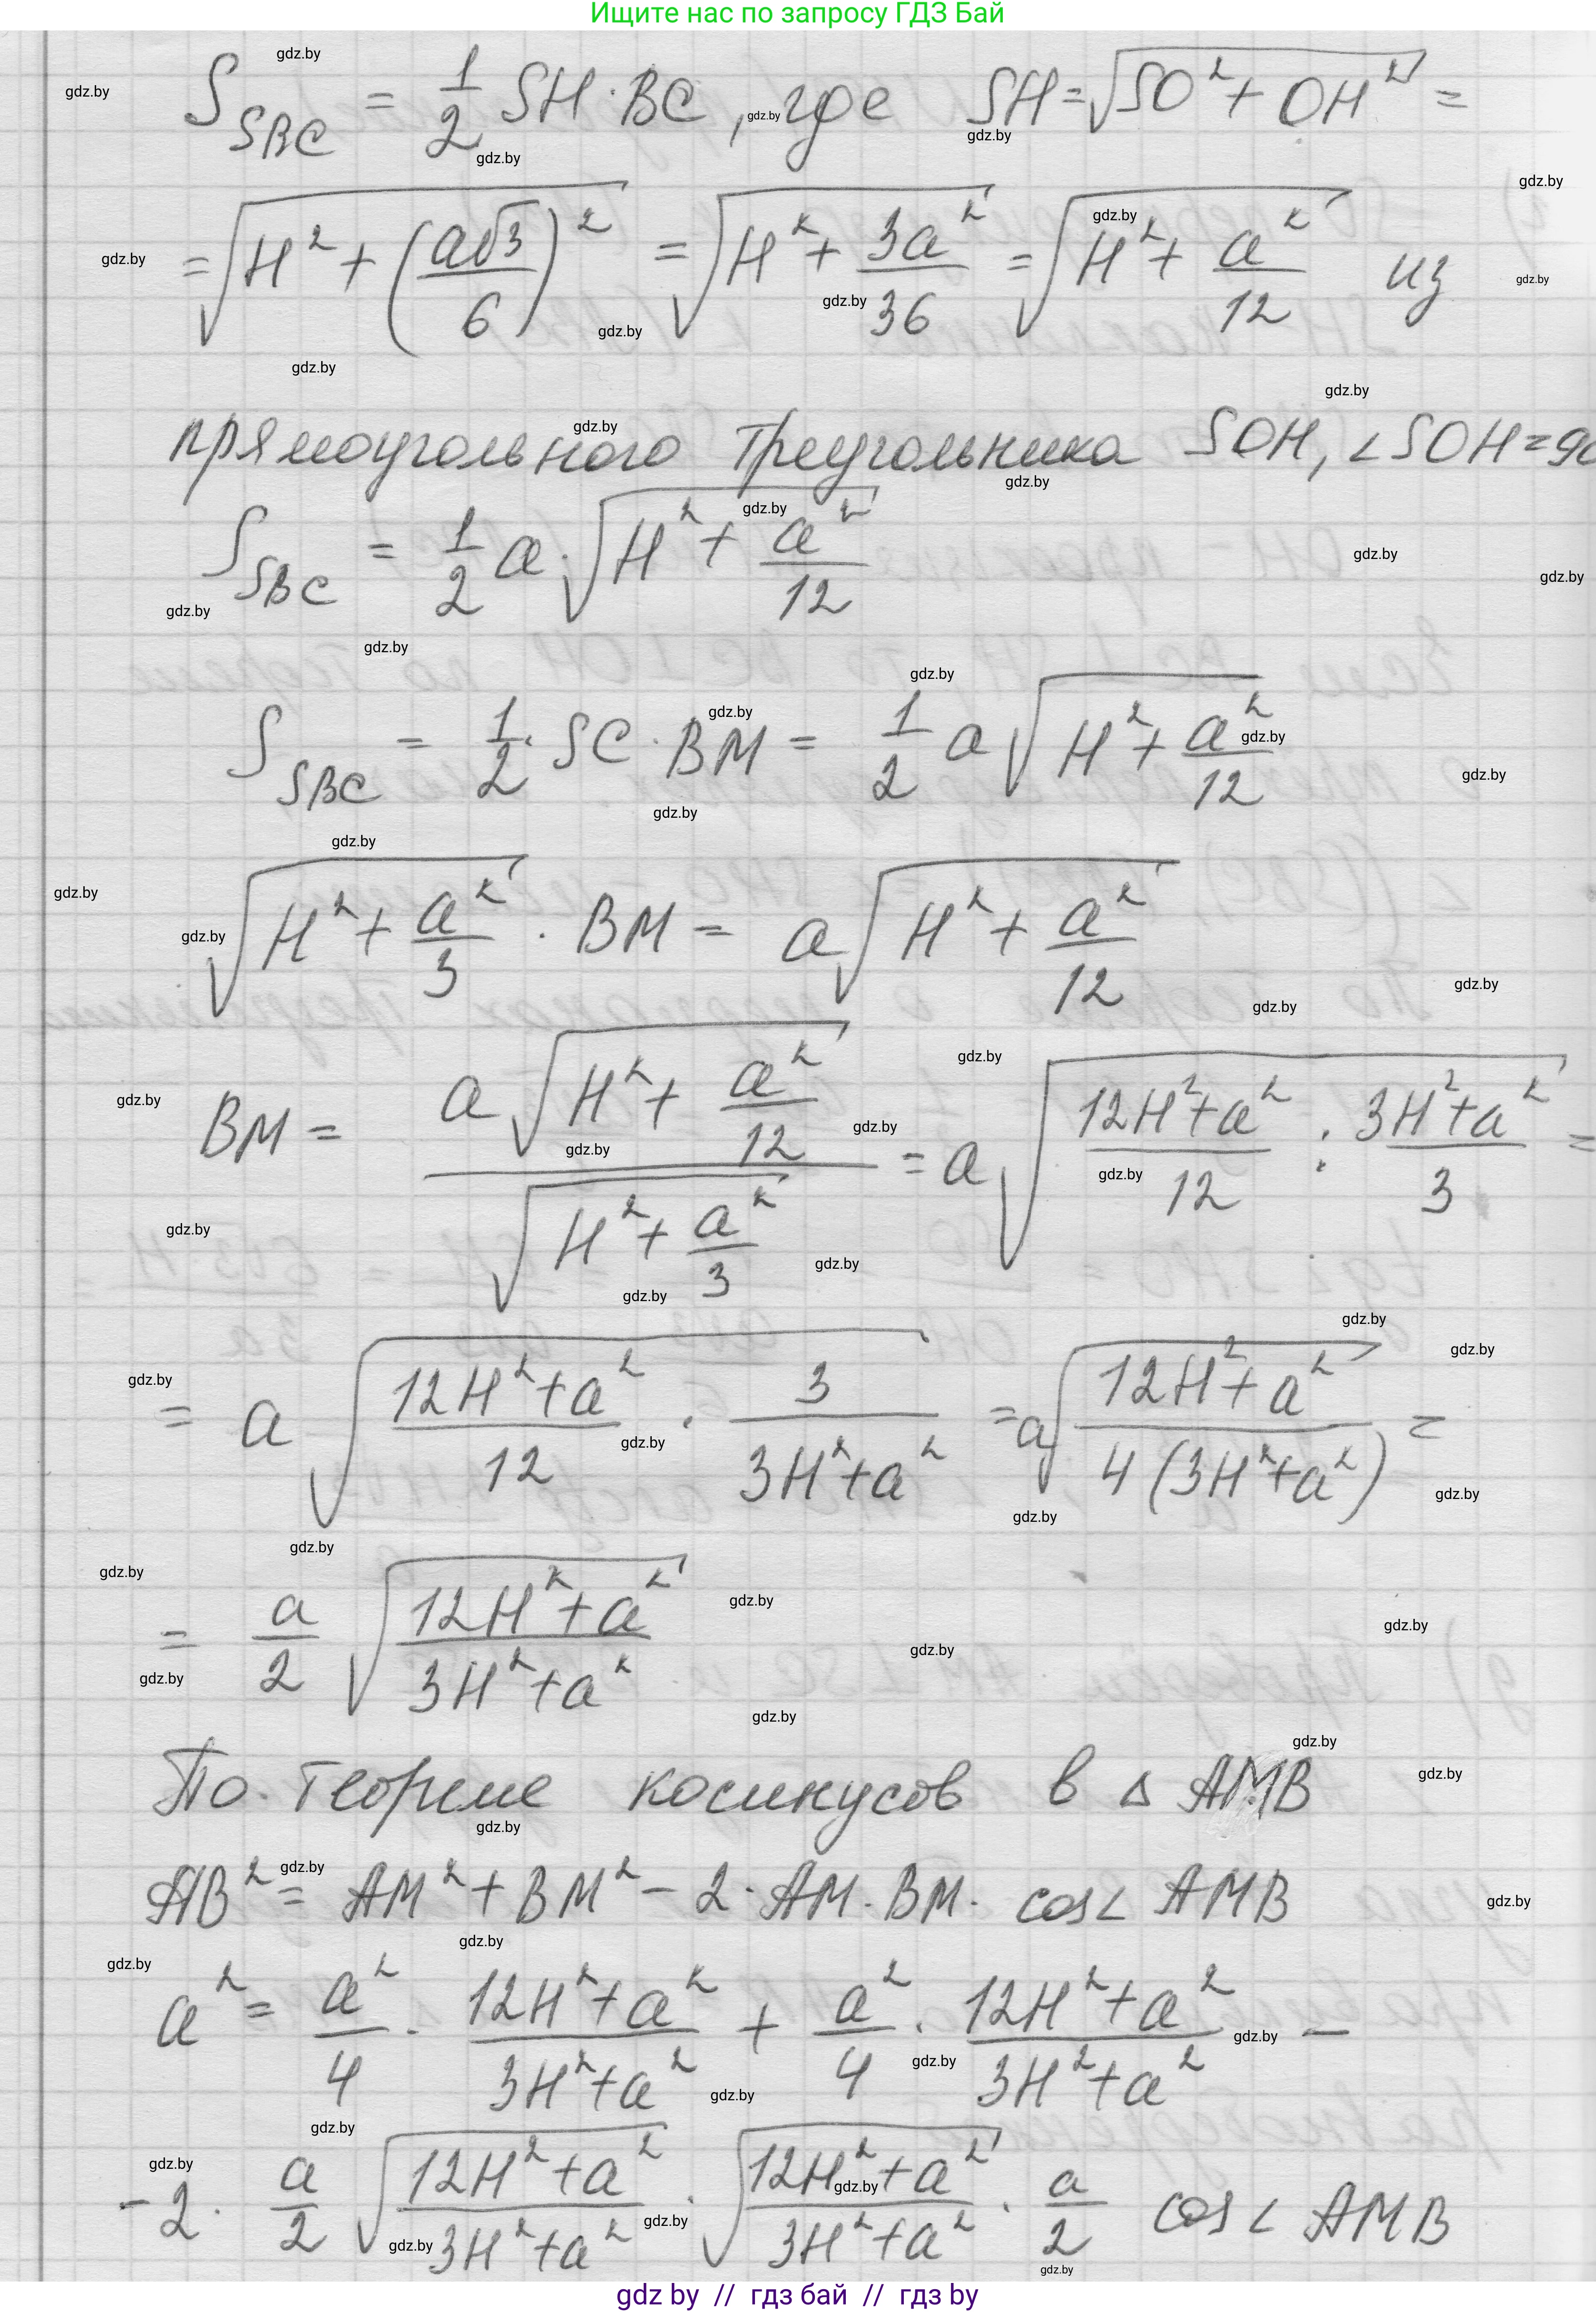 Ищите нас по запросу ГДЗ Бай
S_SBC = 1/2 SH · BC, где SH = √(SO² + OH²) =
= √(H² + (a√3/6)²) = √(H² + 3a²/36) = √(H² + a²/12) из
прямоугольного треугольника SOH, ∠SOH = 90
S_SBC = 1/2 a · √(H² + a²/12)
S_SBC = 1/2 · SC · BM = 1/2 a √(H² + a²/12)
√(H² + a²/3) · BM = a √(H² + a²/12)
BM = a√(H² + a²/12) / √(H² + a²/3) = a √((12H² + a²)/12 : (3H² + a²)/3) =
= a √((12H² + a²)/12 · 3/(3H² + a²)) = a √((12H² + a²)/(4(3H² + a²))) =
= a/2 √((12H² + a²)/(3H² + a²))
По теореме косинусов в △ AMB
AB² = AM² + BM² - 2 · AM · BM · cos∠ AMB
a² = a²/4 · (12H² + a²)/(3H² + a²) + a²/4 · (12H² + a²)/(3H² + a²) -
- 2 · a/2 √((12H² + a²)/(3H² + a²)) · √((12H² + a²)/(3H² + a²)) · a/2 cos∠ AMB
gdz by // гдз бай // гдз by